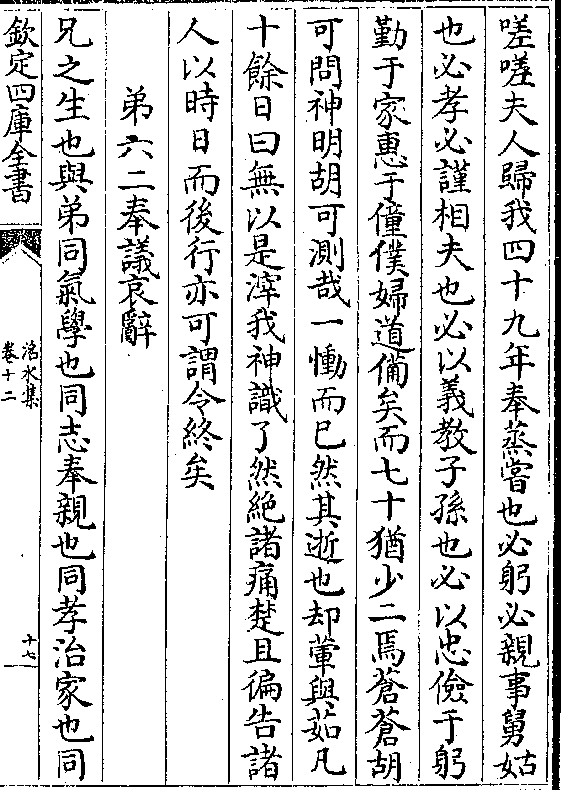 嗟嗟夫人歸我四十九年奉蒸嘗也必躬必親事舅姑
也必孝必謹相夫也必以義教子孫也必以忠儉于躬
勤于家惠于僮僕婦道備矣而七十猶少二焉蒼蒼胡
可問神明胡可測哉一慟而已然其逝也却葷與茹凡
十餘日曰無以是滓我神識了然絶諸痛楚且徧告諸
人以時日而後行亦可謂令終矣
弟六二奉議哀辭
兄之生也與弟同氣學也同志奉親也同孝治家也同
欽定四庫全書
洺水集
卷十二
十七